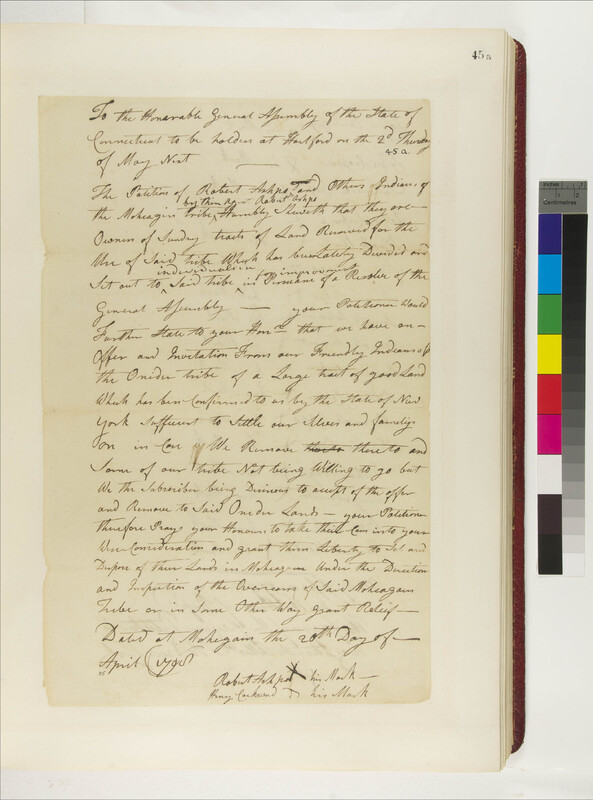 45a
To the Honarable General Assembly of the State of
Connecticut to be holden at Hartford on the 2d Thursday
45 a.
of May Nixt
The Petition of Robert Ashpo and Others Indians of
Robert Ashpo
the Moheagin Tribe Humbly Sheweth that they are
Owners of Sundry tracts of Land Reserved for the
Use of Said tribe Which has been Lately Devided and
individuals improvement
Sit out to Said tribe in Persuance of a Resolve of the
General Assembly — your Petitioner Would
Further State to your Honrs that we have an
Offer and Invitation From our Friendly Indians of
the Oneder tribe of a Large tract of good Land
Which has ben Confirmed to us by the State of New
York Sufficent to Settle our Selves and familys
on in Case We Remove thereto and
Some of our tribe Not being Willing to go but
We the Subscriber being Desirous to accept of the offer
and Remove to Said Oneder Lands — your Petitioner
therefore Prays your Honours to take their Case into your
Wise Consideration and grant them Liberty to Sel and
Dispose of their Lands in Moheagan Under the Direction
and Inspection of the Overseears of Said Moheagain
Tribe or in Some Other Way grant Relief —
Dated at Mohegain the 26th Day of —
April 1798
Robert Ashpo X his Mark —
Henry his Mark
Inches 1 2
Centimetres